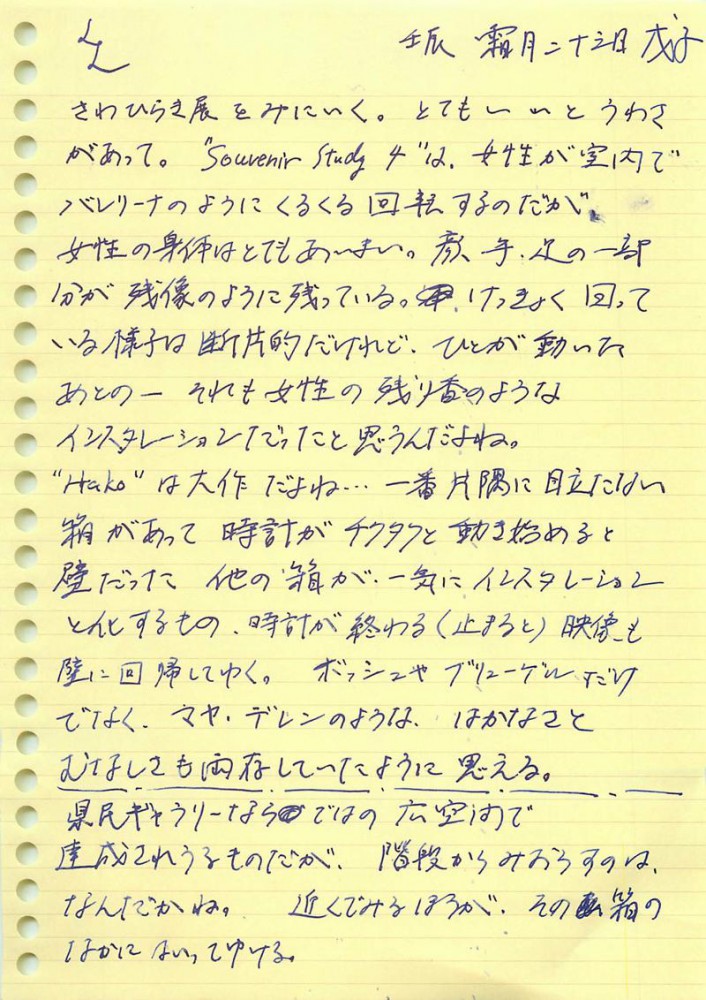 壬辰 霜月二十三日 戊子
さわひらき展をみにいく。とてもいいとうわさ
があって。"Souvenir Study 4"は、女性が室内で
バレリーナのようにくるくる回転するのだが、
女性の身体はとてもあいまい。顔、手、足の一部
分が残像のように残っている。けっきょく回って
いる様子は断片的だけれど、ひとが動いた
あとのー それも女性の残り香のような
インスタレーションだったと思うんだよね。
"Hako"は大作だよね… 一番片隅に目立たない
箱があって 時計がチクタクと動き始めると
壁だった 他の箱が、一気にインスタレーション
と化するもの、時計が終わる(止まると)映像も
壁に回帰してゆく。 ボッシュやブリューゲルだけ
でなく、マヤ・デレンのような、はかなさと
むなしさも両存していたように思える。
県民ギャラリーならではの広空間で
達成されうるものだが、階段からみおろすのは、
なんだかね。 近くでみるほうが、その箱の
なかにはいってゆける。